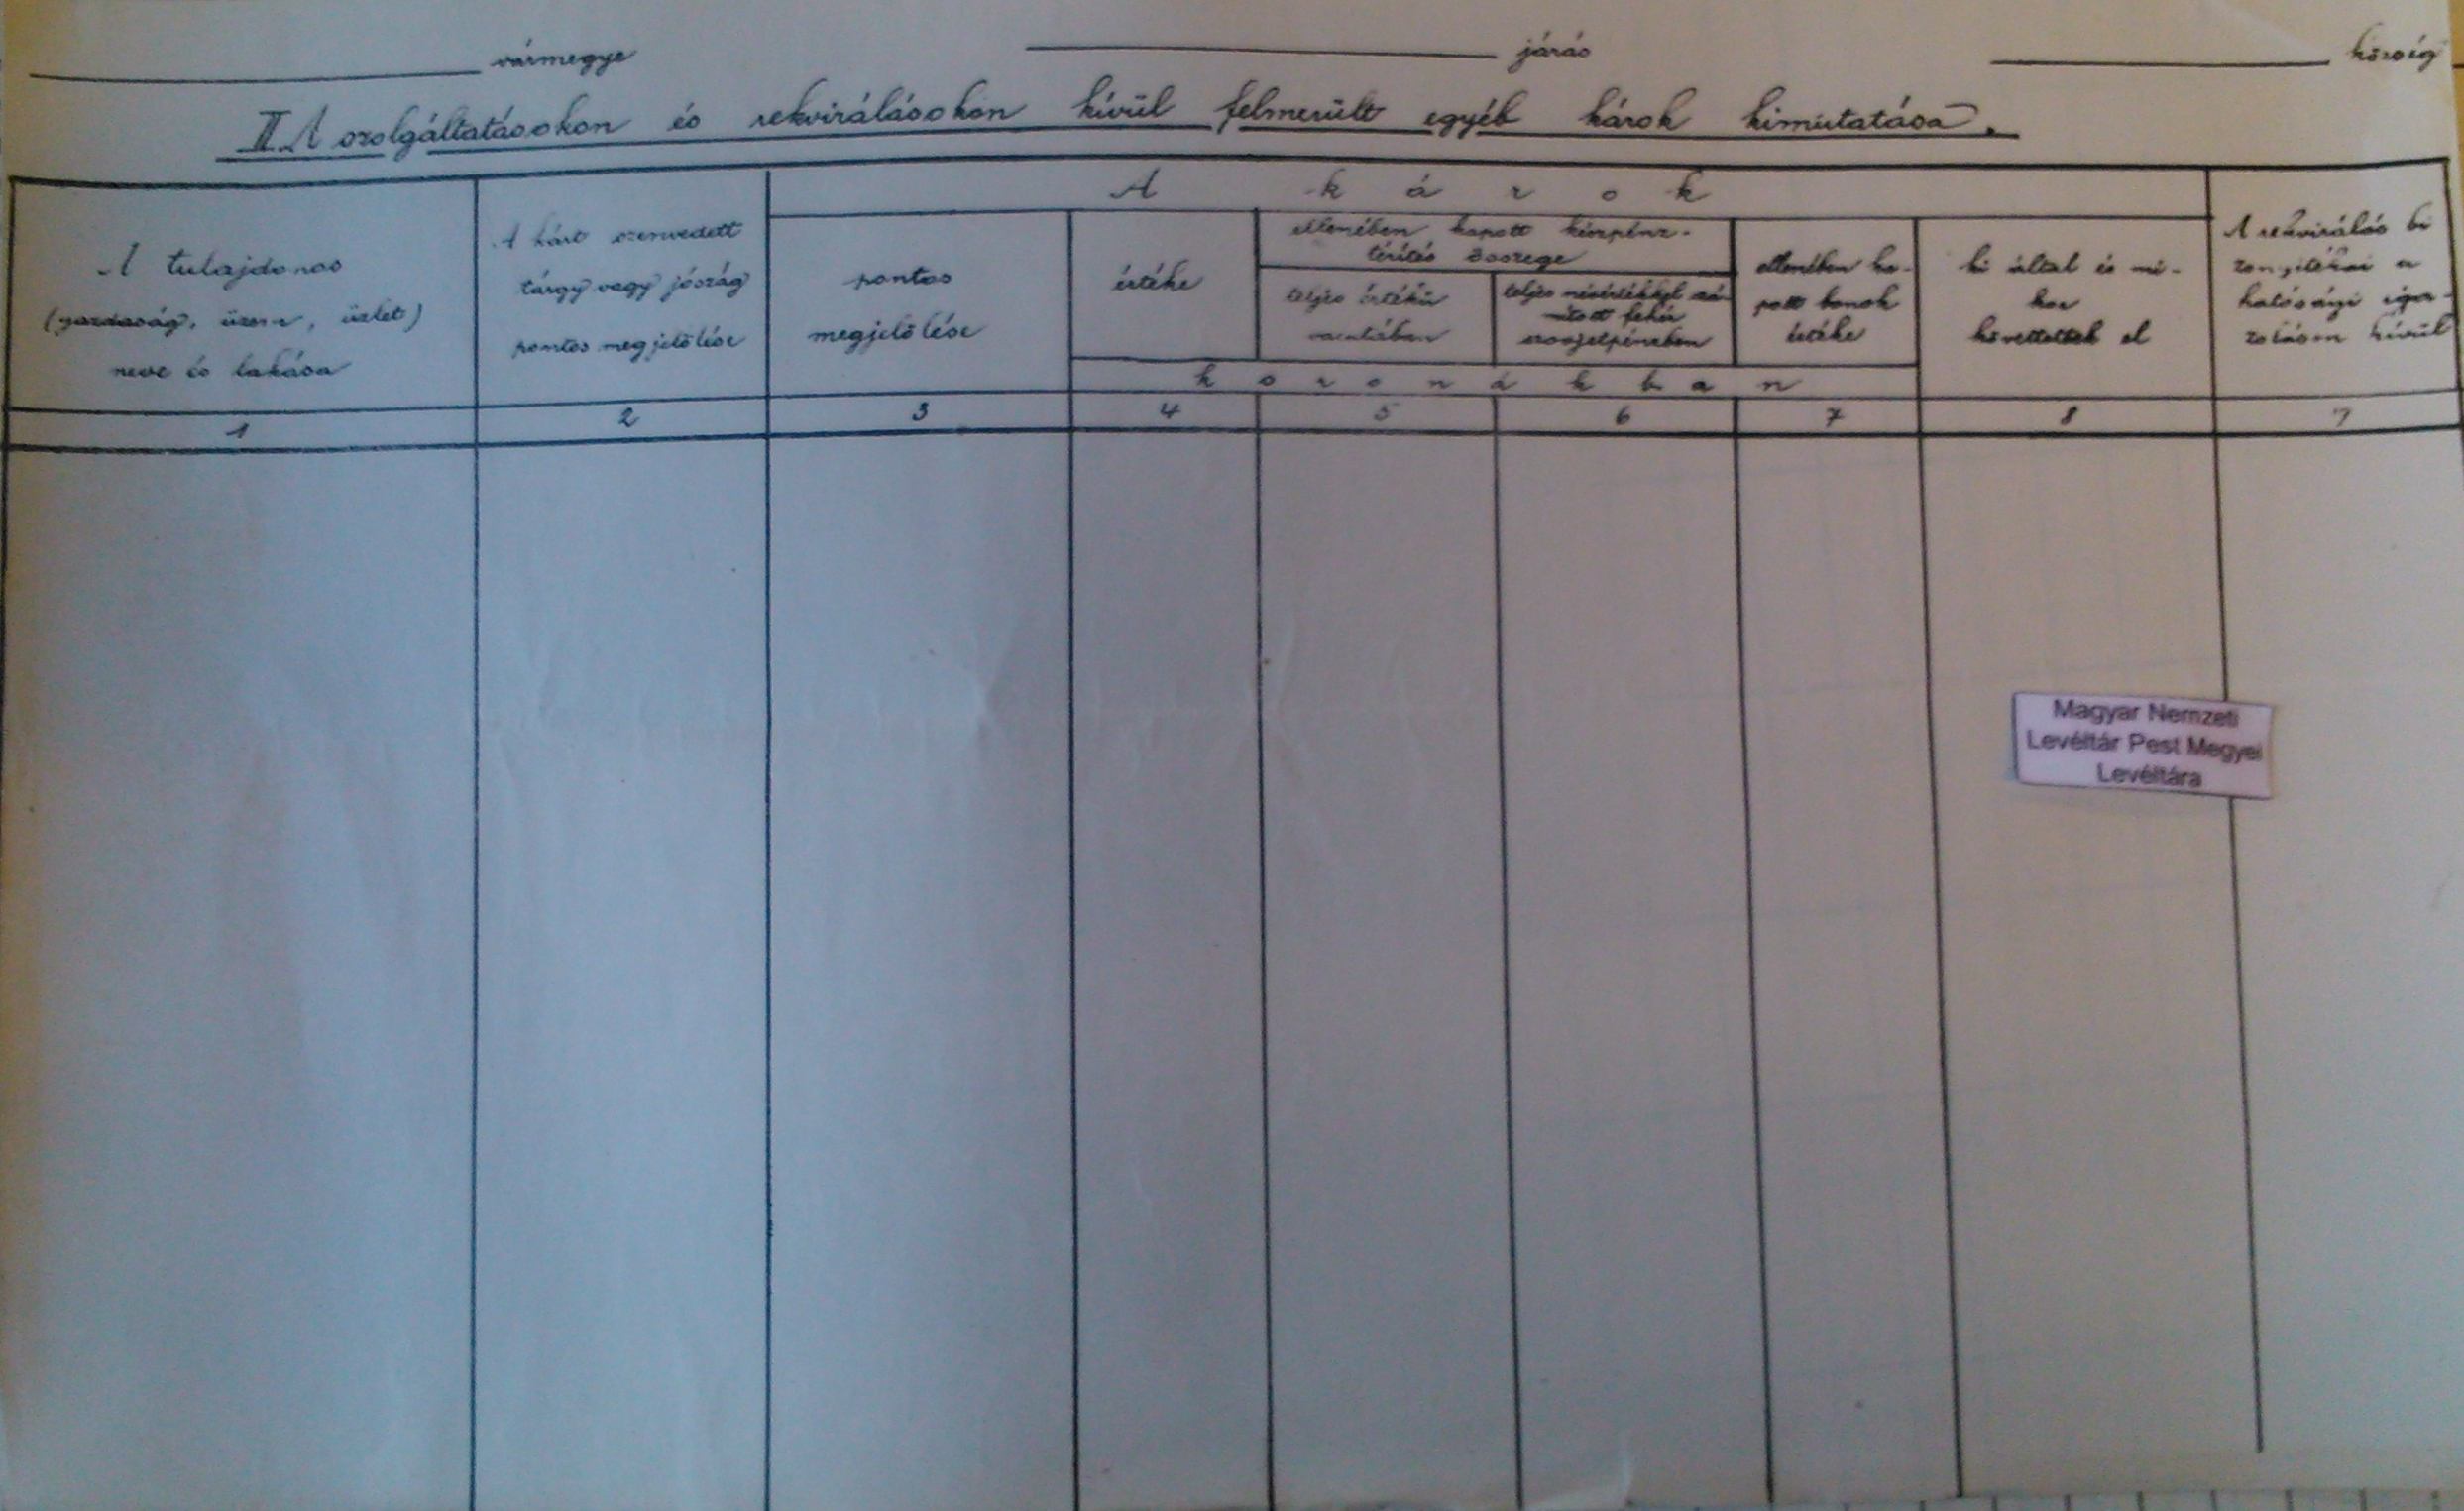 vármegye
járás
község
II. A szolgáltatásokon és rekvirálásokon kívül felmerült egyéb károk kimutatása.
A károk
A tulajdonos
(gazdaság, üzem, üzlet)
neve és lakása
A kárt szenvedett
tárgy vagy jószág
pontos megjelölése
pontos
megjelölése
értéke
ellenében kapott készpénz-
térítés összege
teljes értékű
valutában
teljes névértékkel szá-
mított fehér
szovjetpénzben
ellenében ka-
pott bonok
értéke
koronákban
ki által és mi-
kor
követtettek el
A rekvirálás bi
zonyítékai a
hatósági iga-
zoláson kívül
1
2
3
4
5
6
7
8
9
Magyar Nemzeti
Levéltár Pest Megyei
Levéltára